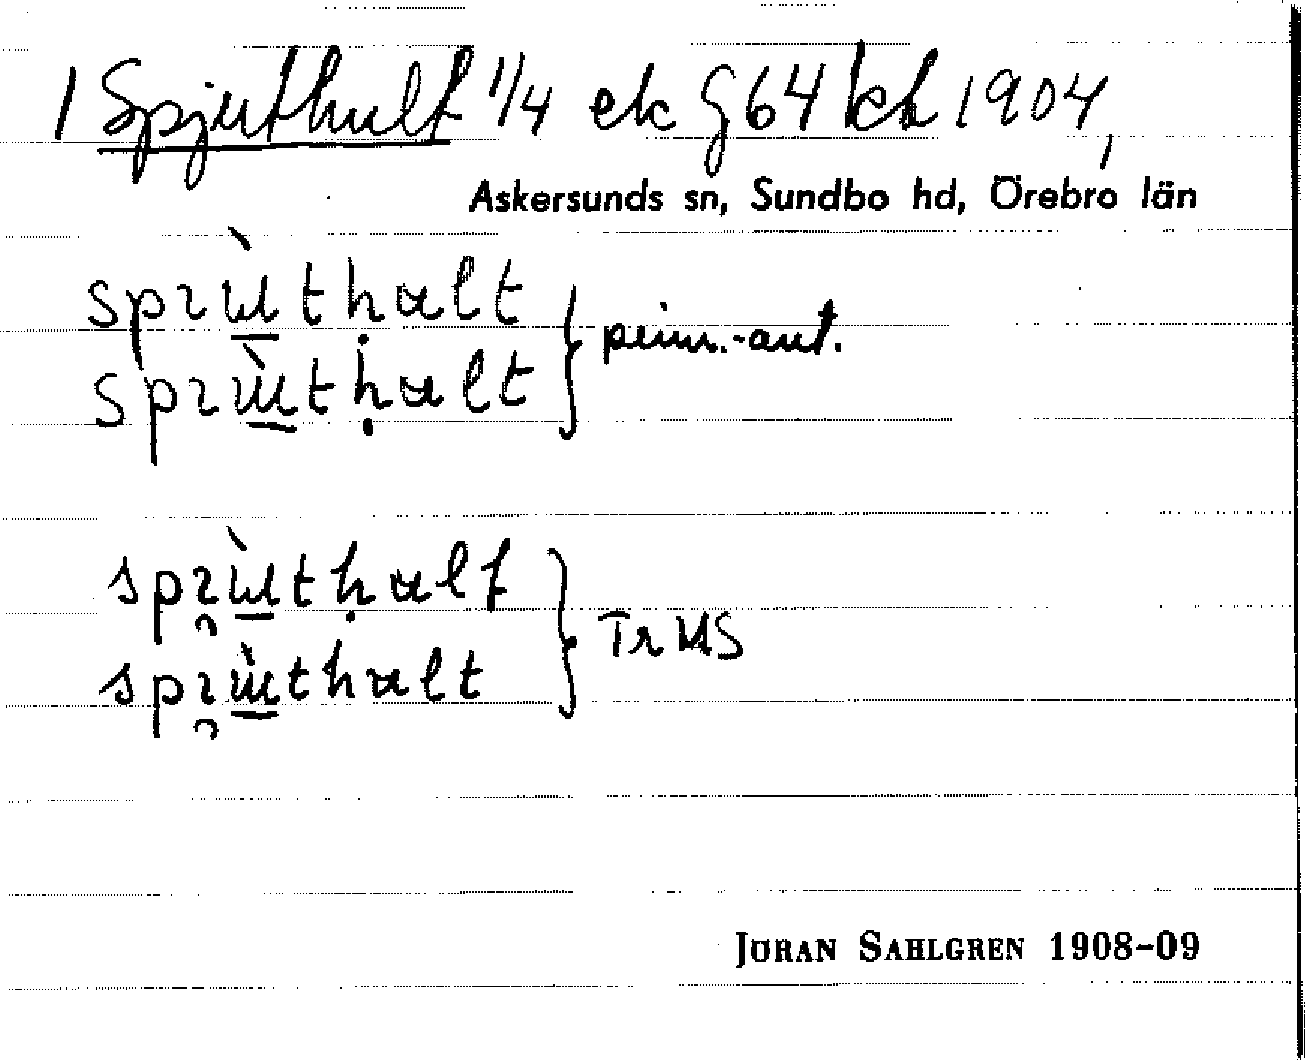 1 Spjuthult 1/4 ek G 64 kh 1904,
Askersunds sn, Sundbo hd, Örebro län
sprùthult
sprùthult } prim.-ant.
sprùthult
sprùthult } TrUS
JÖRAN SAHLGREN 1908-09